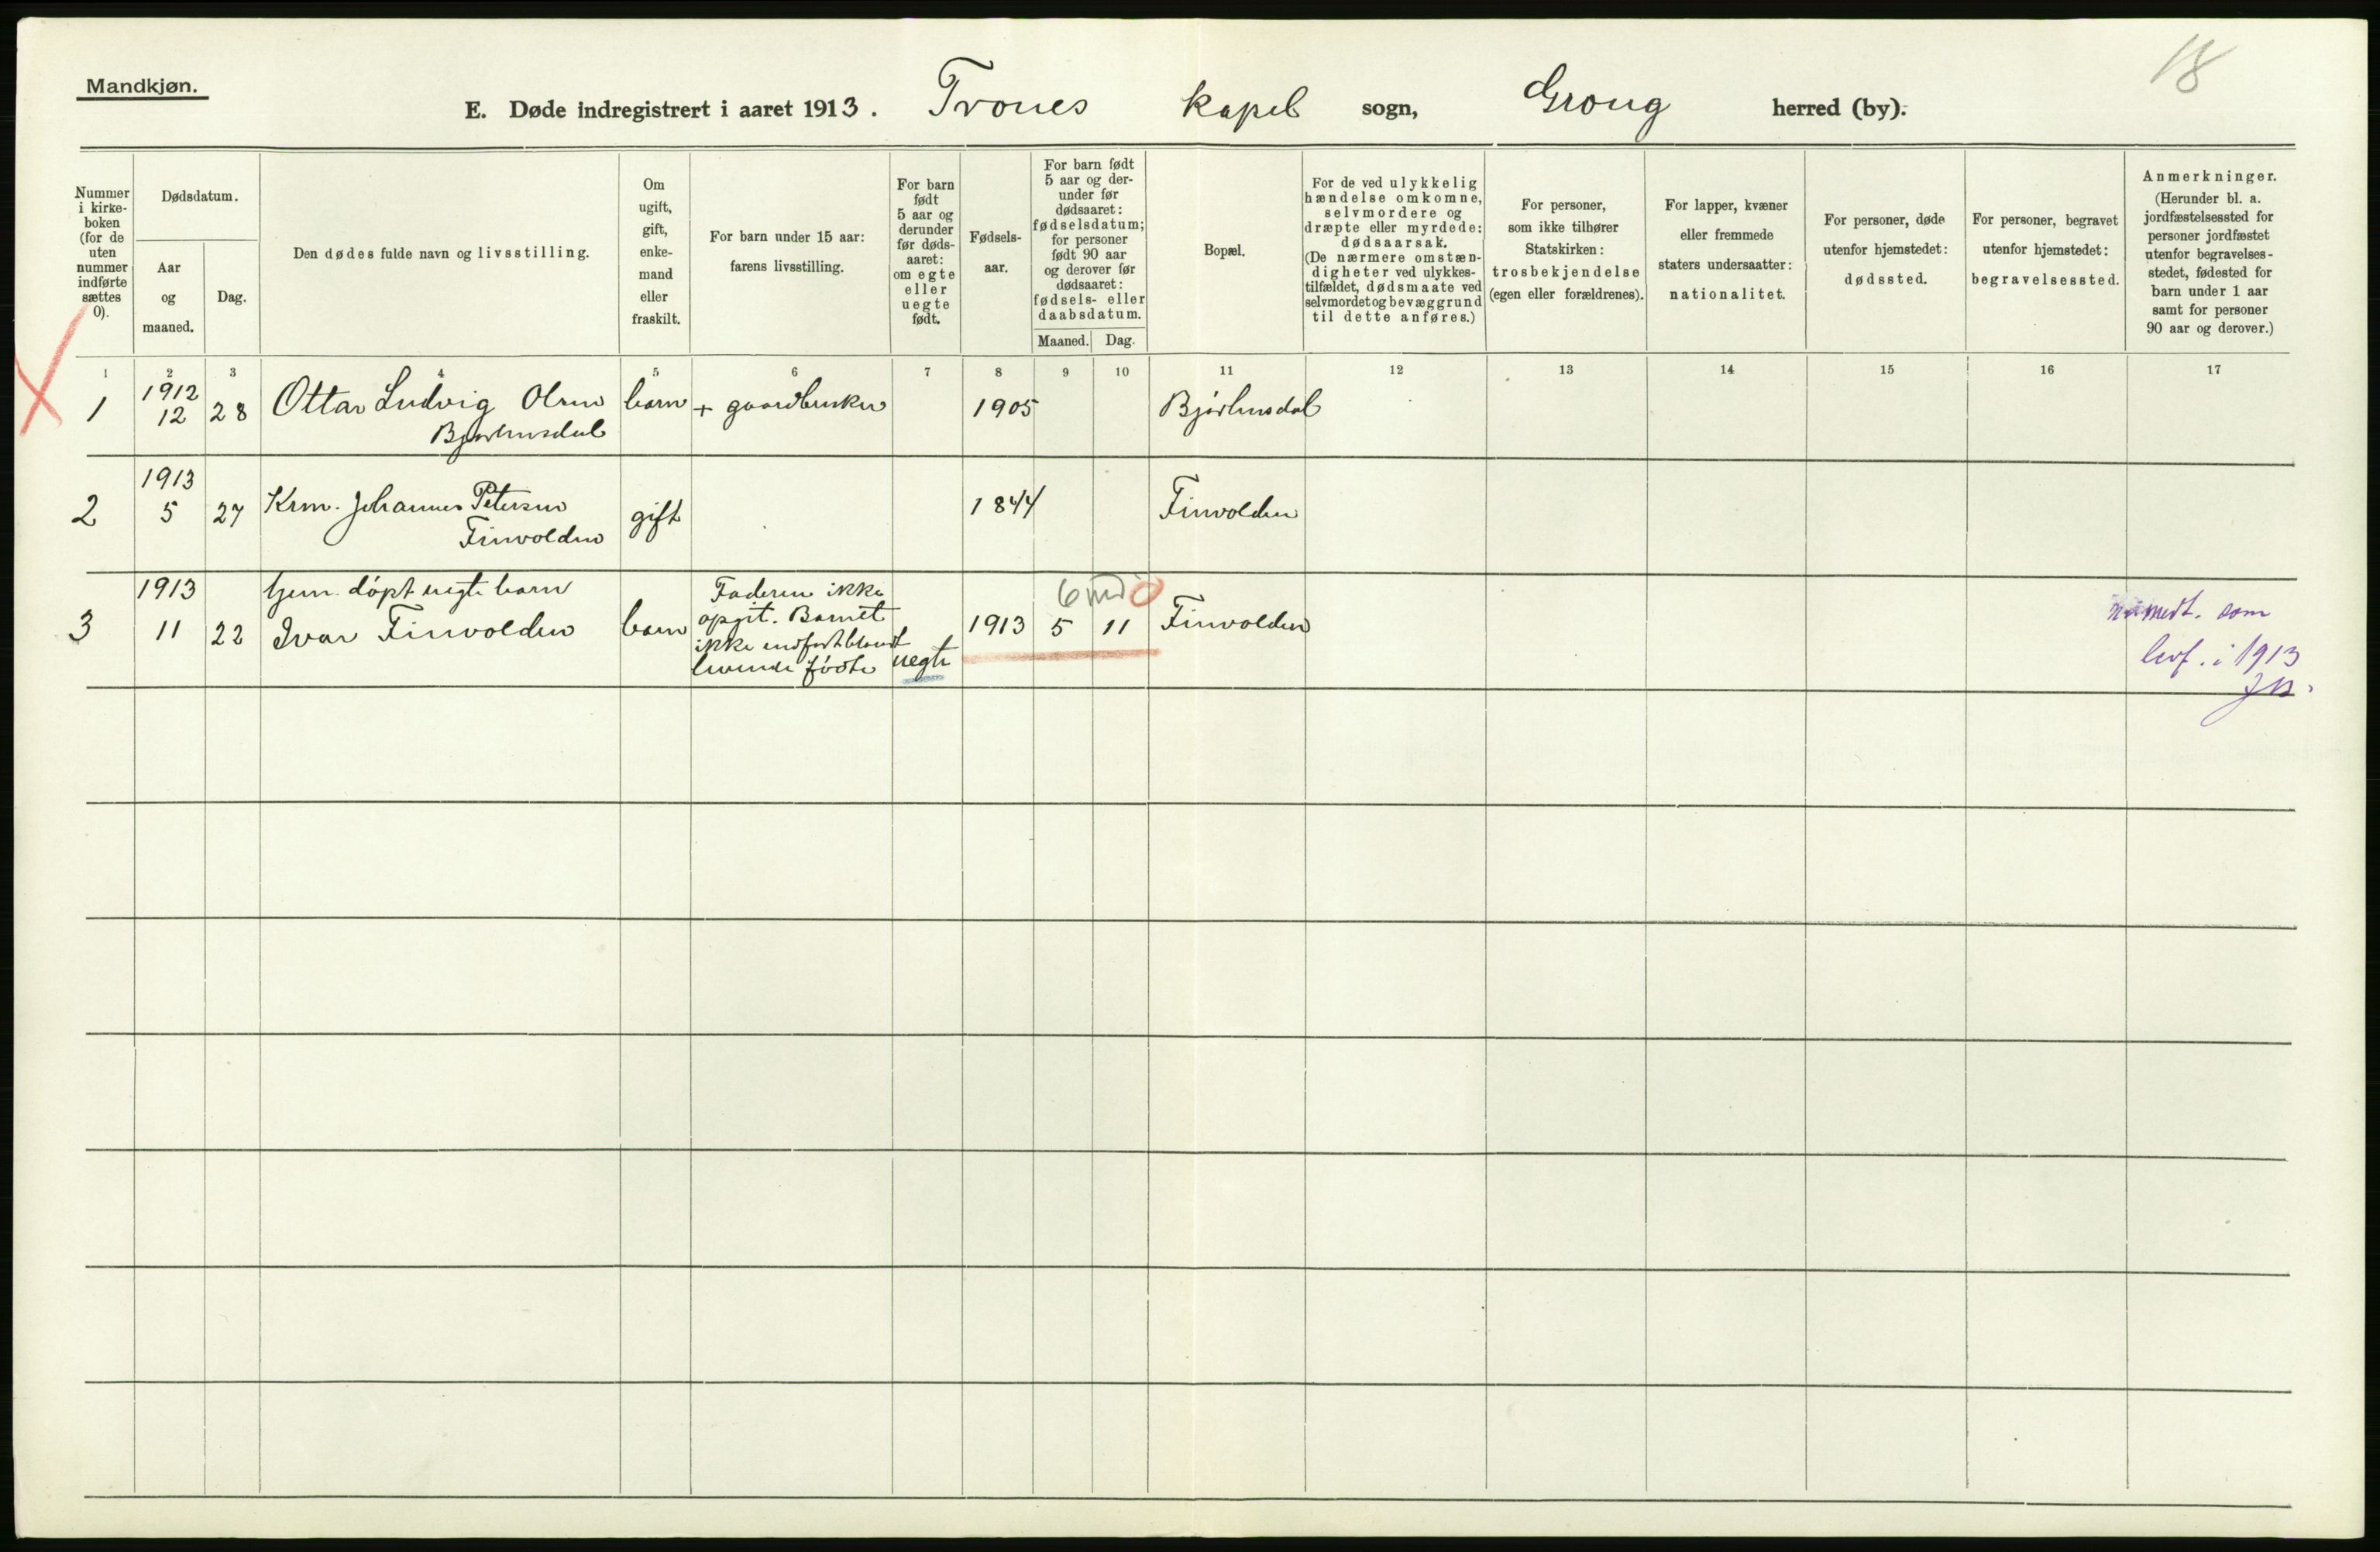 18
Mandkjøn.
E. Døde indregistrert i aaret 1913. Trones kapel sogn, Grong herred (by).
Nummer i kirke-boken (for de uten nummer indførte sættes 0).
Dødsdatum.
Aar og maaned.
Dag.
Den dødes fulde navn og livsstilling.
Om ugift, gift, enke-mand eller fraskilt.
For barn under 15 aar: farens livsstilling.
For barn født 5 aar og derunder før døds-aaret: om egte eller uegte født.
Fødsels-aar.
For barn født 5 aar og der-under før dødsaaret: fødselsdatum; for personer født 90 aar og derover før dødsaaret: fødsels- eller daabsdatum.
Maaned. Dag.
Bopæl.
For de ved ulykkelig hændelse omkomne, selvmordere og dræpte eller myrdede: dødsaarsak. (De nærmere omstæn-digheter ved ulykkes-tilfældet, dødsmaate ved selvmordet og bevæggrund til dette anføres.)
For personer, som ikke tilhører Statskirken: trosbekjendelse (egen eller forældrenes).
For lapper, kvæner eller fremmede staters undersaatter: nationalitet.
For personer, døde utenfor hjemstedet: dødssted.
For personer, begravet utenfor hjemstedet: begravelsessted.
Anmerkninger. (Herunder bl. a. jordfæstelsessted for personer jordfæstet utenfor begravelses-stedet, fødested for barn under 1 aar samt for personer 90 aar og derover.)
1 2 3 4 5 6 7 8 9 10 11 12 13 14 15 16 17
1 1912 12 28 Ottar Ludvig Olsen barn + gaardbruker 1905
Bjørhusdal Bjørhusdal
2 1913 5 27 Krm. Johannes Petersen gift 1844 Finvolden
Finvolden
1913 hjem. døpt uegte barn Faderen ikke 6 md 0
3 11 22 Ivar Finvolden barn opgit. Barnet 1913 5 11 Finvolden
ikke indført blandt
levende fødte uegte
som
levf. i 1913